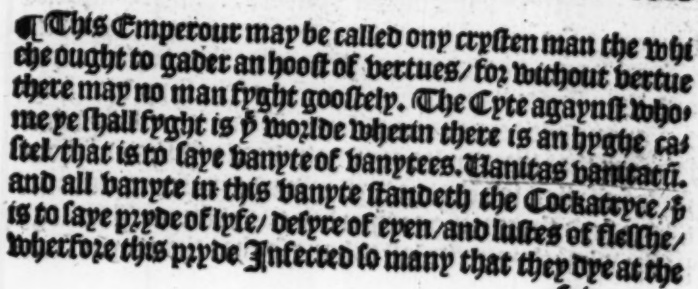 ¶ This Emperour may be called ony crysten man the whi
che ought to gader an hoost of vertues/ for without vertue
there may no man fyght goostely. The Cyte agaynst who⸗
me ye shall fyght is yͤ worlde wherin there is an hyghe ca⸗
stel/that is to saye vanyte of vanytees. Uanitas vanitatū.
and all vanyte in this vanyte standeth the Cockatryce/ yͭ
is to saye pryde of lyfe/ desyre of eyen/and lustes of flesshe/
wherfore this pryde Infected so many that they dye at the